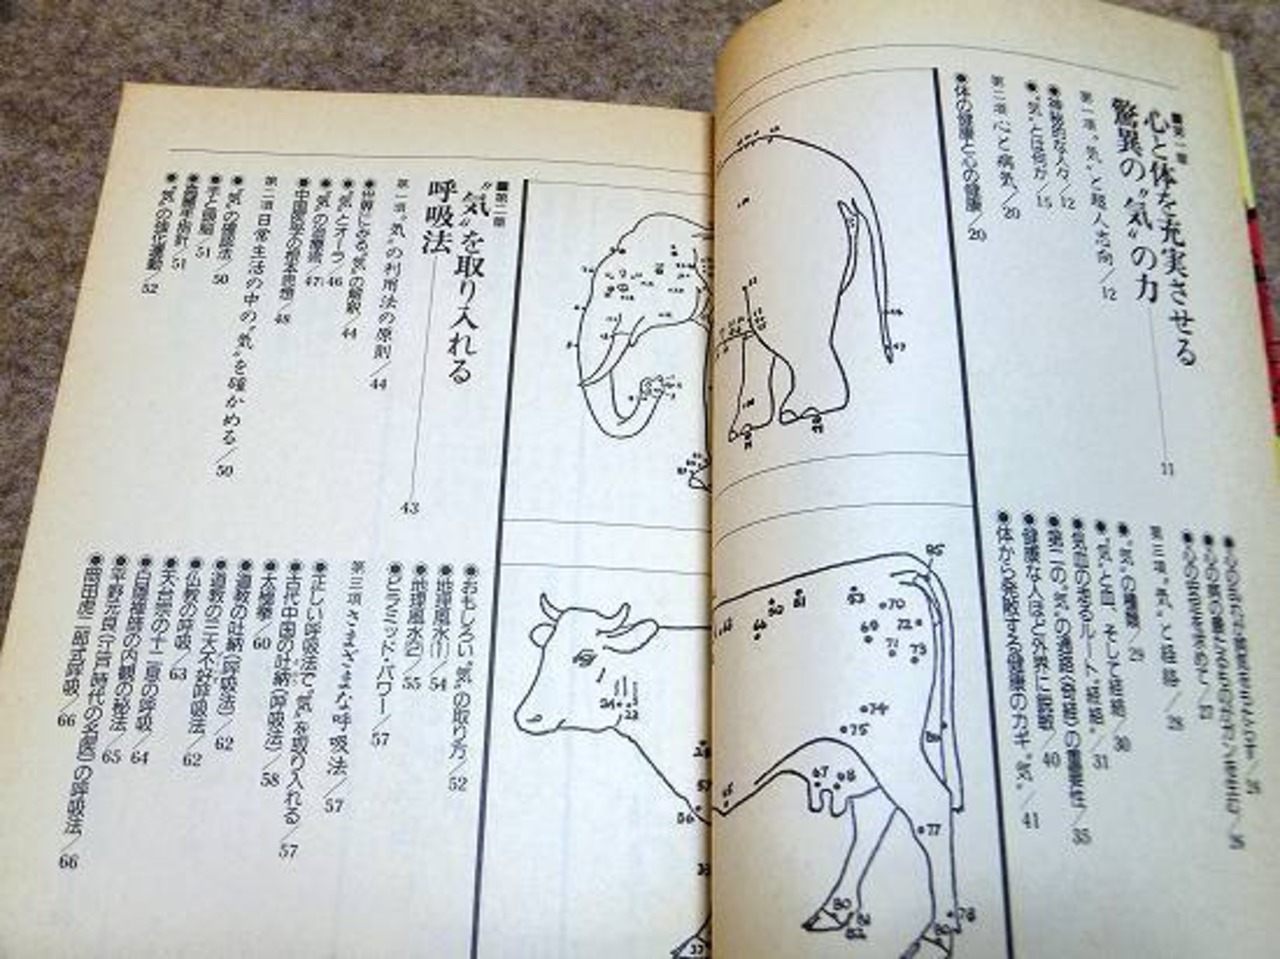 ■第一章
心と体を充実させる
驚異の〝気〟の力 11
第一項 〝気〟と超人志向/12
●神秘的な人々/12
●〝気〟とは何か/15
第二項 心と病気/20
●体の健康と心の健康/20
第三項 〝気〟と経絡/28
●〝気〟の種類/29
●〝気〟と血、そして経絡/30
●気血の走るルート〝経絡〟/31
●第二の〝気〟の通路〈奇経〉の重要性/35
●健康な人ほど外界に鋭敏/40
●体から発散する健康のカギ〝気〟/41
■第二章
〝気〟を取り入れる
呼吸法 43
第一項 〝気〟の利用法の原則/44
●世界にみる〝気〟の解釈/44
●〝気〟とオーラ/46
●〝気〟の治療術/47
●中国医学の根本思想/48
第二項 日常生活の中の〝気〟を確かめる/50
●〝気〟の確認法/50
●手と頭脳/51
●両手指針/51
●〝気〟の強化運動/52
●おもしろい〝気〟の取り方/52
●地理風水(1)/54
●地理風水(2)/55
●ピラミッド・パワー/57
第三項 さまざまな呼吸法/57
●正しい呼吸法で〝気〟を取り入れる/57
●古代中国の吐納(呼吸法)/58
●太極拳/60
●道教の吐納(呼吸法)/62
●道教の三大不好呼吸法/62
●仏教の呼吸/63
●天台宗の十二息の呼吸/64
●白隠禅師の内観の秘法/65
●平野元良(江戸時代の名医)の呼吸法/66
●岡田虎二郎式呼吸/66